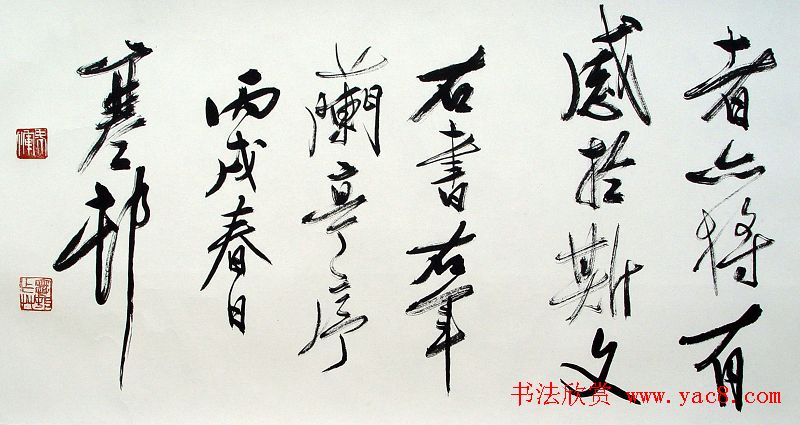 者亦将有
感於斯文
右書右軍
之蘭亭序
丙戌春日
寒邨
书法欣赏 www.yac8.com